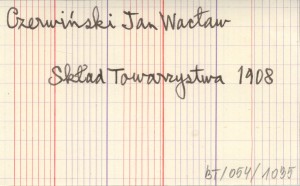 Czerwiński Jan Wacław
Skład Towarzystwa 1908
BT/054/1035